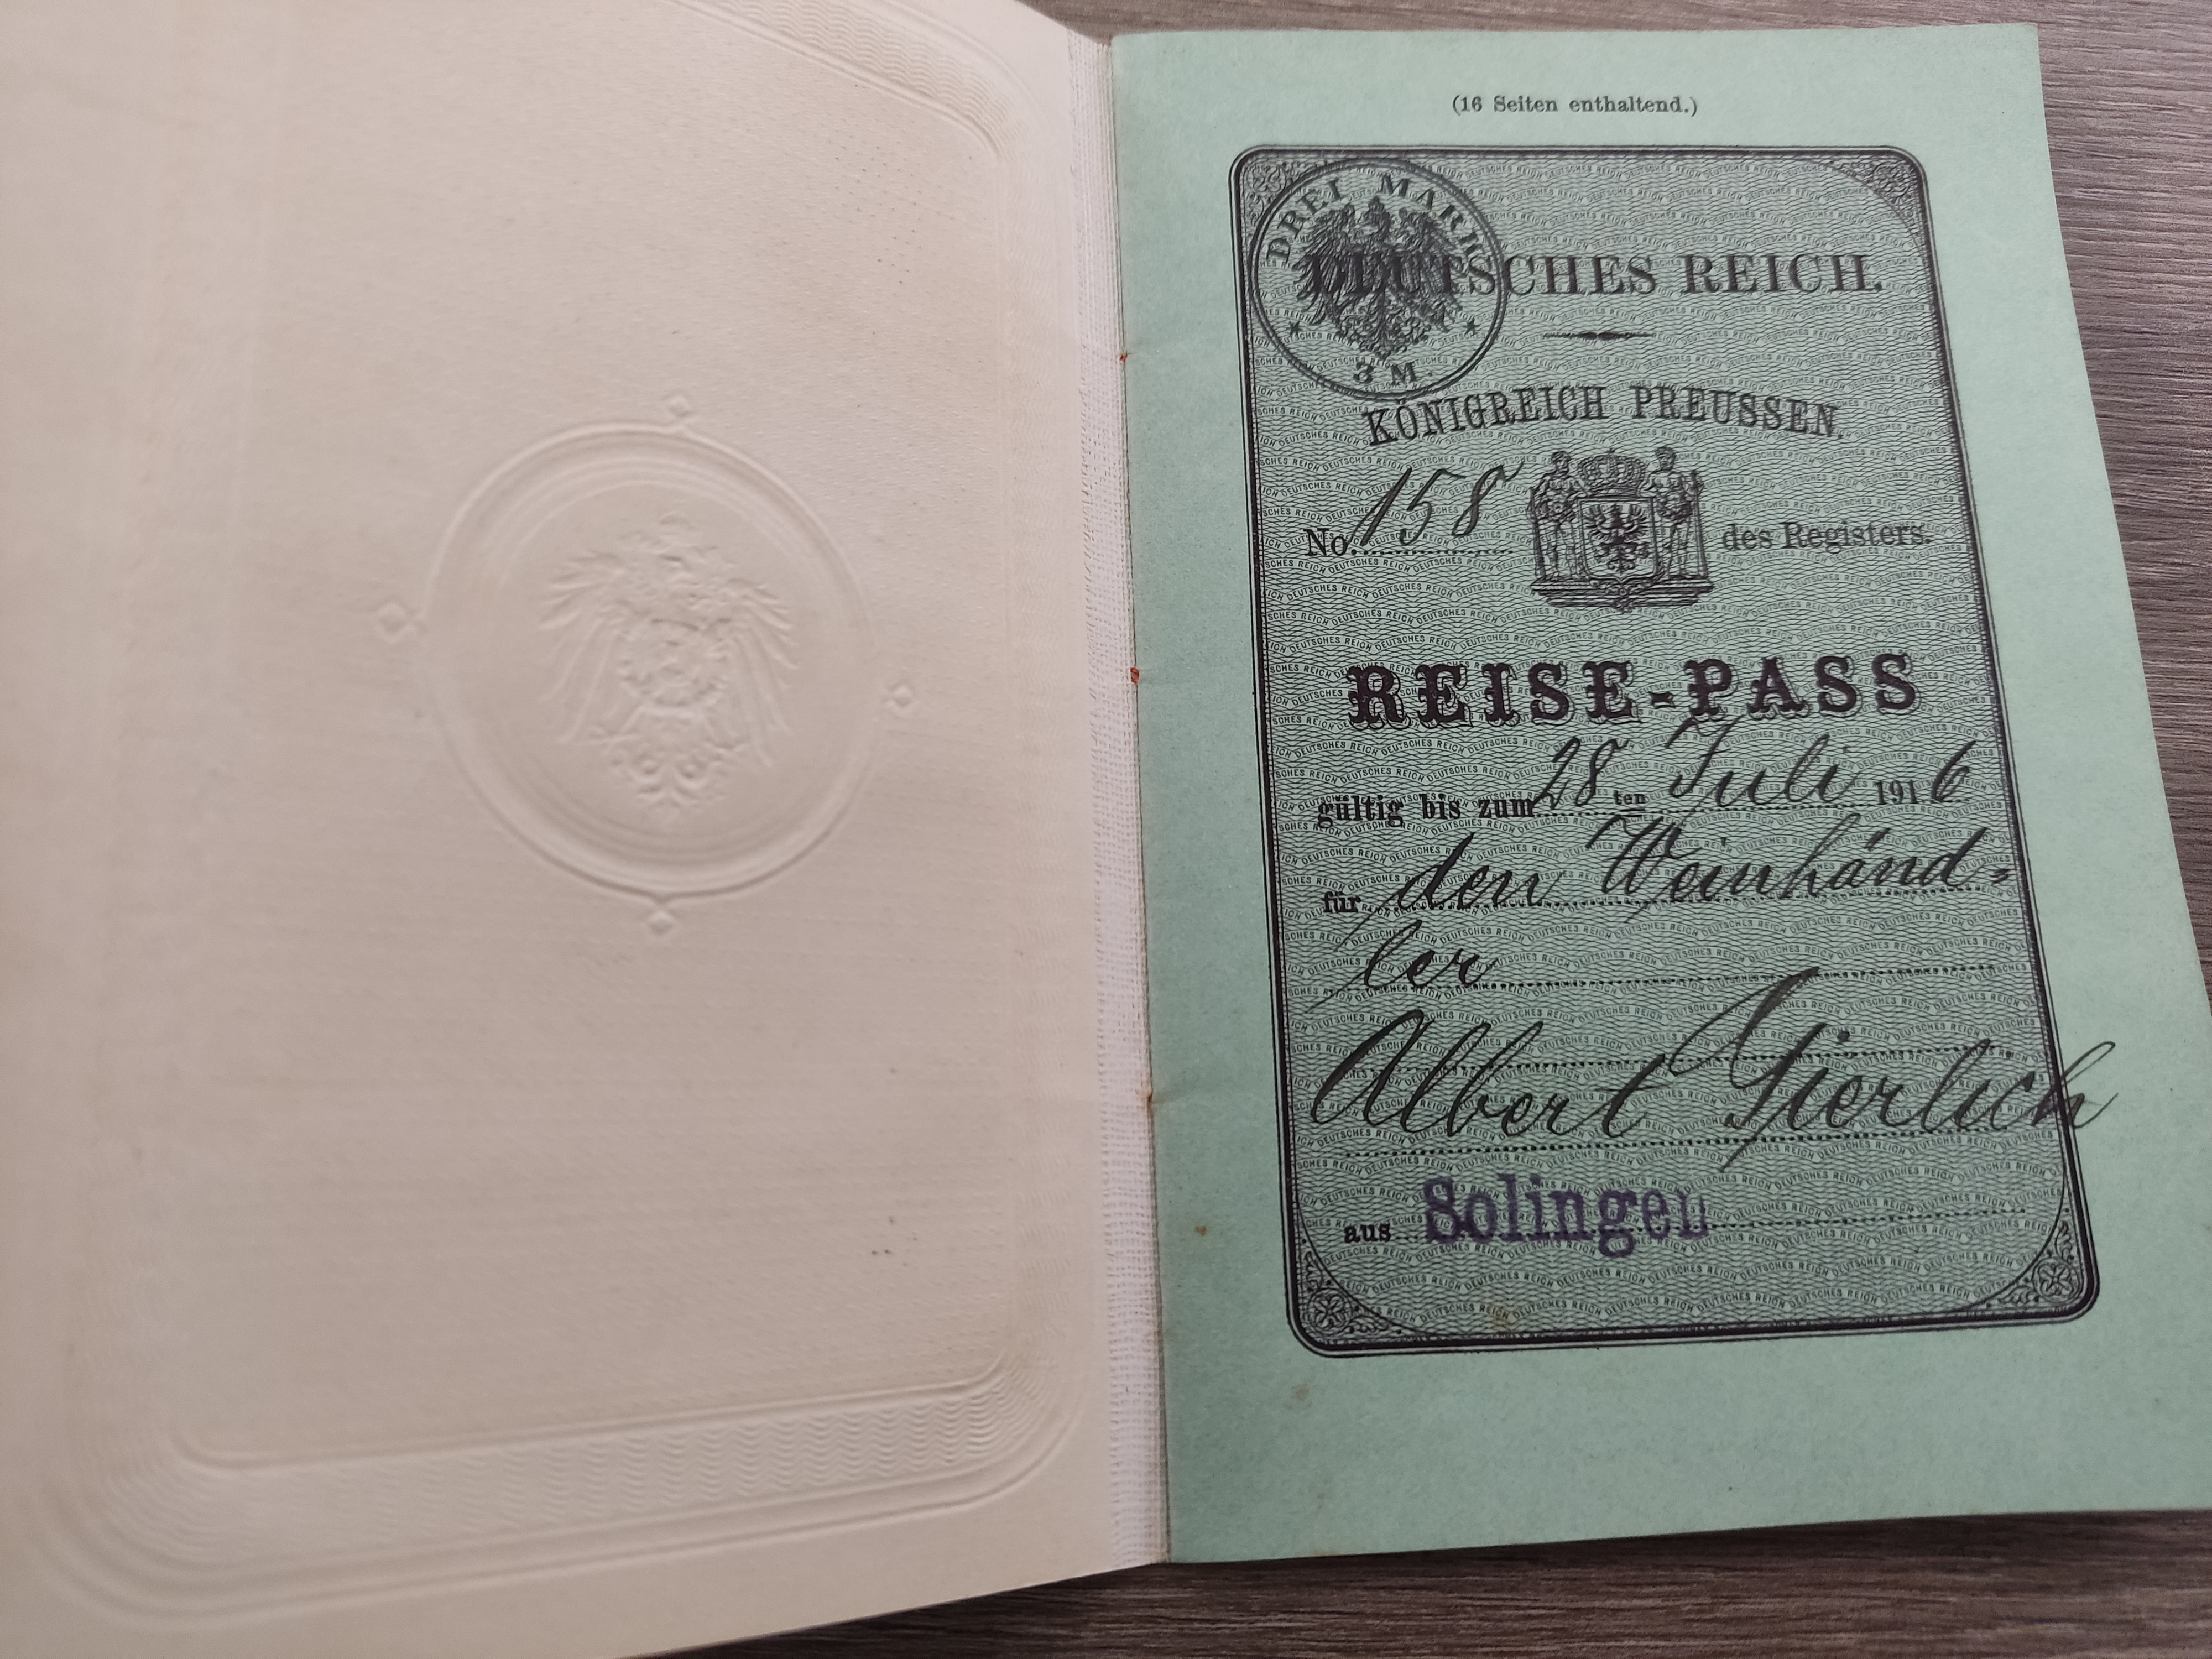 (16 Seiten enthaltend.)
DREI MARK
3 M.
DEUTSCHES REICH.
KÖNIGREICH PREUSSEN.
No. 158 des Registers.
REISE-PASS
gültig bis zum 28 ten Juli 1916
für den Weinhänd-
ler
Albert Gierlich
aus Solingen